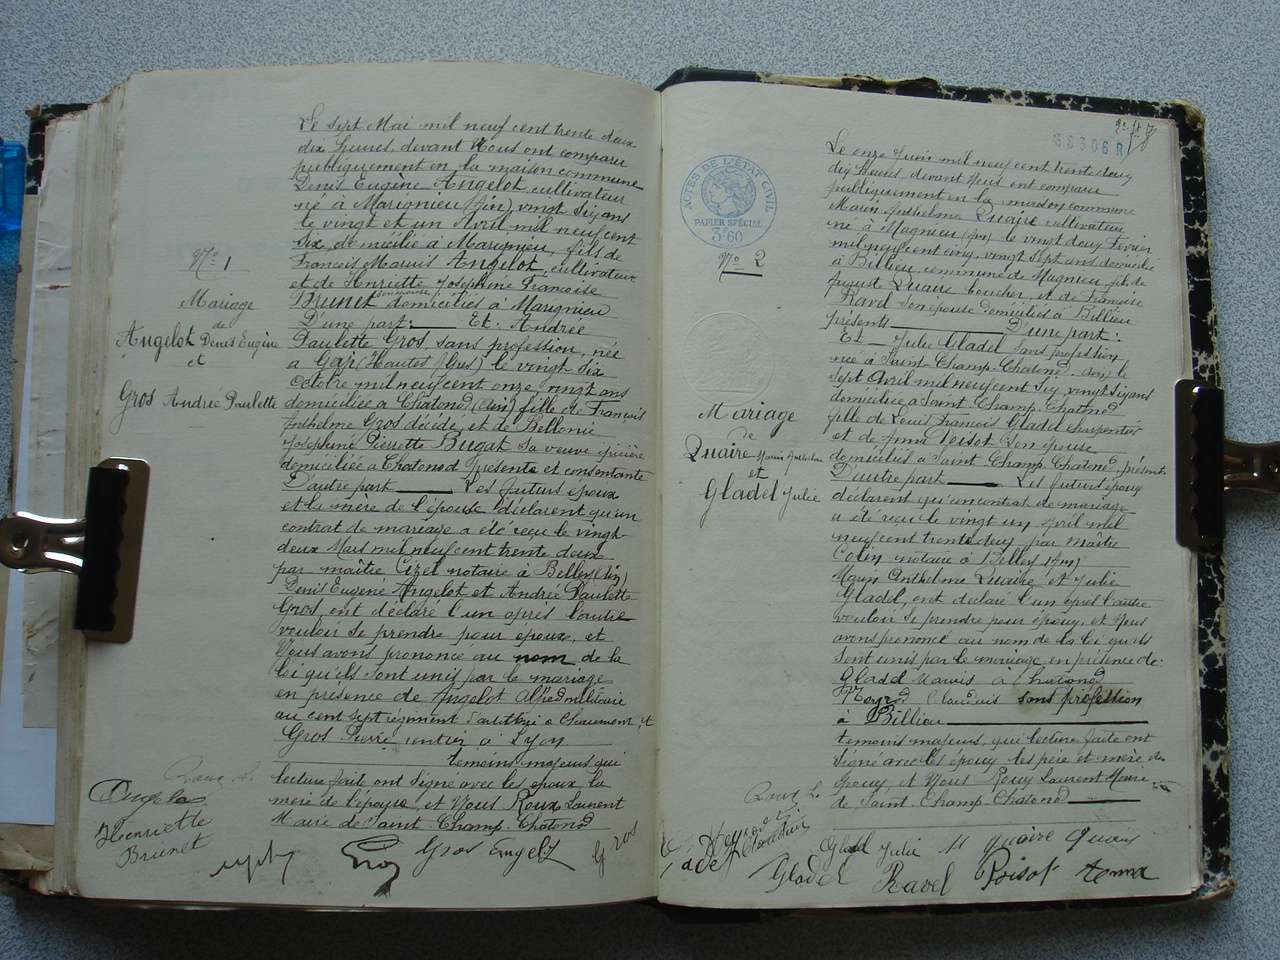 Nº 1
Mariage
de
Angelot Denis Eugène
et
Gros Andrée Paulette
Le sept Mai mil neuf cent trente deux
dix heures, devant Nous ont comparu
publiquement en la maison commune
Denis Eugène Angelot, cultivateur
né à Marignieu (Ain), vingt six ans
le vingt et un Avril mil neuf cent
six, domicilié à Marignieu, fils de
François Marius Angelot, cultivateur
et de Henriette Joséphine Françoise
Brunet son épouse domiciliés à Marignieu
D'une part: Et. Andrée
Paulette Gros, sans profession, née
à Gap (Hautes Alpes) le vingt six
Octobre mil neuf cent onze vingt ans
domiciliée à Chatonod (Ain) fille de François
Anthelme Gros décédé, et de Bellonie
Joséphine Pierrette Bugat sa veuve épicière
domiciliée à Chatonod présente et consentante
D'autre part Les futurs époux
et la mère de l'épouse déclarent qu'un
contrat de mariage a été reçu le vingt
deux Mars mil neuf cent trente deux
par maître notaire à Belley (Ain)
Denis Eugène Angelot et Andrée Paulette
Gros, ont déclaré l'un après l'autre
vouloir se prendre pour époux, et
Nous avons prononcé au nom de la
loi qu'ils sont unis par le mariage
en présence de Angelot Alfred militaire
au cent sept régiment d'artillerie à Chaumont, et
Gros Pierre rentier à Lyon
témoins majeurs qui
lecture fait ont signé avec les époux la
mère de l'épouse, et Nous Roux Laurent
Maire de Saint-Champ-Chatonod
Roux L.
Angelot
Henriette
Brunet
Gros Angelot
Gros
38306R
ACTES DE L'ÉTAT CIVIL
PAPIER SPÉCIAL
3F60
Nº 2
Mariage
de
Quaire Marin Anthelme
et
Gladel Julie
Le onze Juin mil neuf cent trente deux
dix heures devant Nous ont comparu
publiquement en la maison commune
Marin Anthelme Quaire cultivateur
né à Magnieu (Ain) le vingt deux Février
mil neuf cent cinq, vingt sept ans domicilié
à Billieu commune de Magnieu fils de
Auguste Quaire boucher, et de Françoise
Ravel son épouse domiciliés à Billieu
présents D'une part:
Et Julie Gladel sans profession
née à Saint-Champ-Chatonod (Ain) le
sept Avril mil neuf cent six vingt six ans
domiciliée à Saint Champ-Chatonod
fille de Louis François Gladel charpentier
et de Anna Poisot son épouse
domiciliés à Saint Champ-Chatonod présents
D'autre part Les futurs époux
déclarent qu'un contrat de mariage
a été reçu le vingt un avril mil
neuf cent trente deux par maître
Colin notaire à Belley (Ain)
Marin Anthelme Quaire et Julie
Gladel, ont déclaré l'un après l'autre
vouloir se prendre pour époux, et Nous
avons prononcé au nom de la loi qu'ils
sont unis par le mariage, en présence de:
Gladel Marius à Chatonod
Claudius sans profession
à Billieu
témoins majeurs, qui lecture faite ont
signé avec les époux, les père et mère des
époux, et Nous Roux Laurent Maire
de Saint-Champ-Chatonod
Roux L.
Gladel Julie M Quaire Quaire
Gladel Ravel Poisot Anna